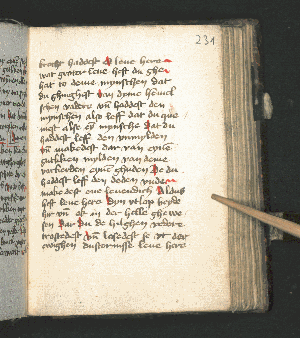 231
brocht haddest O leue here
wat groter leue hest du ghe
hat to deme mynschen dat
du ghinghest van dyme hemel
schen vadere vn haddest den
mynschen also leff dat du que
mest also eyn mynsche Dat du
haddest leff den vnmylden
vn makedest dar van eyne
gutliken mylden van deme
vorkerden eyne ghuden De du
haddest leff den doden vnde
makedest ene leuendich Aldus
hest leue here Dyn vtlop beyde
hir vn ok in der helle ghewe
sen Dar Du de hilghen vedere
trostedest Vn losedest se vt der
ewighen dusternisse leue here